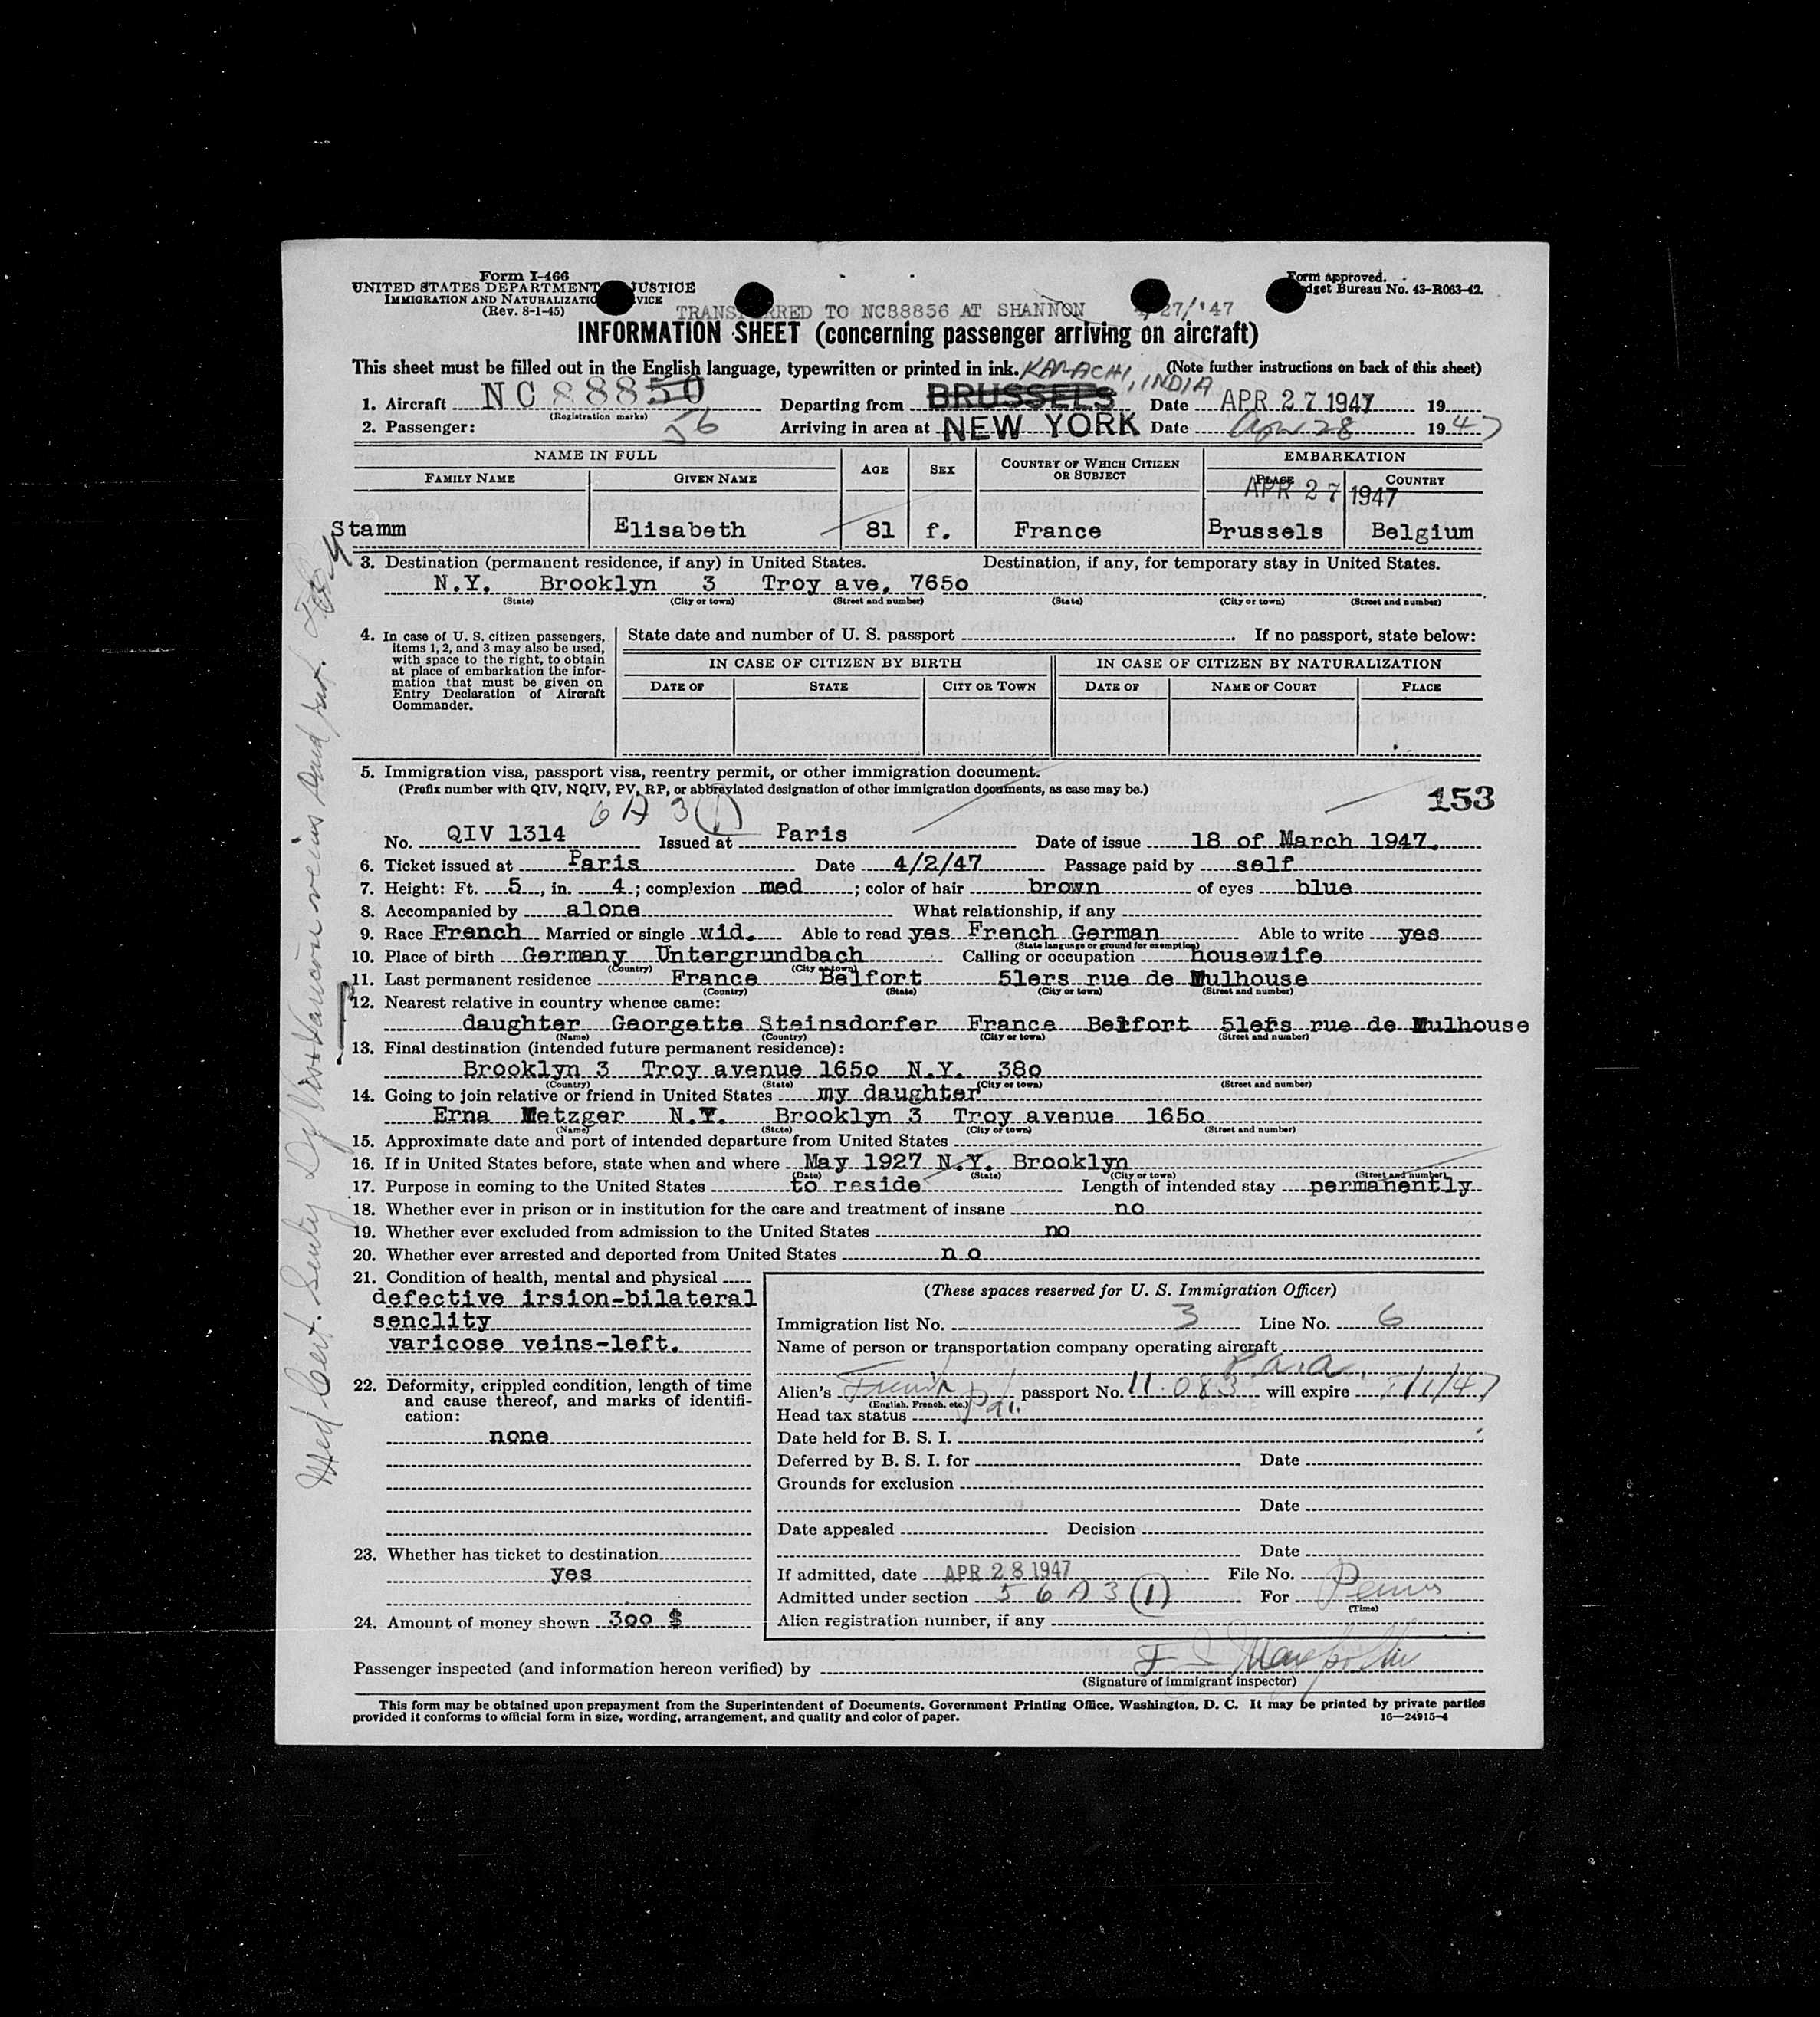 Form I-466
UNITED STATES DEPARTMENT JUSTICE
IMMIGRATION AND NATURALIZATIO VICE
(Rev. 8-1-45)
Form approved.
dget Bureau No. 43-R063-42.
TRANS RRED TO NC88856 AT SHANNON 4/27/'47
INFORMATION SHEET (concerning passenger arriving on aircraft)
This sheet must be filled out in the English language, typewritten or printed in ink. (Note further instructions on back of this sheet)
KARACHI, INDIA
1. Aircraft NC88850 Departing from BRUSSELS Date APR 27 1947 19
(Registration marks)
56
2. Passenger: Arriving in area at NEW YORK Date Apr 28 1947
NAME IN FULL AGE SEX COUNTRY OF WHICH CITIZEN OR SUBJECT EMBARKATION
FAMILY NAME GIVEN NAME PLACE COUNTRY
APR 27 1947
Stamm Elisabeth 81 f. France Brussels Belgium
3. Destination (permanent residence, if any) in United States. Destination, if any, for temporary stay in United States.
N.Y. Brooklyn 3 Troy ave. 765o
(State) (City or town) (Street and number) (State) (City or town) (Street and number)
4. In case of U. S. citizen passengers, items 1, 2, and 3 may also be used, with space to the right, to obtain at place of embarkation the information that must be given on Entry Declaration of Aircraft Commander.
State date and number of U. S. passport If no passport, state below:
IN CASE OF CITIZEN BY BIRTH IN CASE OF CITIZEN BY NATURALIZATION
DATE OF STATE CITY OR TOWN DATE OF NAME OF COURT PLACE
5. Immigration visa, passport visa, reentry permit, or other immigration document.
(Prefix number with QIV, NQIV, PV, RP, or abbreviated designation of other immigration documents, as case may be.)
153
6 A 3 (1)
No. QIV 1314 Issued at Paris Date of issue 18 of March 1947.
6. Ticket issued at Paris Date 4/2/47 Passage paid by self
7. Height: Ft. 5, in. 4; complexion med; color of hair brown of eyes blue
8. Accompanied by alone What relationship, if any
9. Race French Married or single wid. Able to read yes French German Able to write yes
(State language or ground for exemption)
10. Place of birth Germany Untergrundbach Calling or occupation housewife
(Country) (City or town)
11. Last permanent residence France Belfort 51ers rue de Mulhouse
(Country) (State) (City or town) (Street and number)
12. Nearest relative in country whence came:
daughter Georgette Steinsdorfer France Belfort 51ers rue de Mulhouse
(Name) (Country) (City or town) (Street and number)
13. Final destination (intended future permanent residence):
Brooklyn 3 Troy avenue 165o N.Y. 38o
(Country) (State) (City or town) (Street and number)
14. Going to join relative or friend in United States my daughter
Erna Metzger N.Y. Brooklyn 3 Troy avenue 165o
(Name) (State) (City or town) (Street and number)
15. Approximate date and port of intended departure from United States
16. If in United States before, state when and where May 1927 N.Y. Brooklyn
(Date) (State) (City or town) (Street and number)
17. Purpose in coming to the United States to reside Length of intended stay permanently
18. Whether ever in prison or in institution for the care and treatment of insane no
19. Whether ever excluded from admission to the United States no
20. Whether ever arrested and deported from United States no
21. Condition of health, mental and physical
defective irsion-bilateral
senclity
varicose veins-left.
22. Deformity, crippled condition, length of time and cause thereof, and marks of identification:
none
23. Whether has ticket to destination
yes
24. Amount of money shown 3oo $
(These spaces reserved for U. S. Immigration Officer)
Immigration list No. 3 Line No. 6
Name of person or transportation company operating aircraft
P.a.a.
Alien's French passport No. 11.083 will expire 7/1/47
(English, French, etc.)
Head tax status
Date held for B. S. I.
Deferred by B. S. I. for Date
Grounds for exclusion
Date
Date appealed Decision
Date
If admitted, date APR 28 1947 File No.
Admitted under section 5 6 A 3 (1) For Perm
(Time)
Alien registration number, if any
Passenger inspected (and information hereon verified) by
(Signature of immigrant inspector)
This form may be obtained upon prepayment from the Superintendent of Documents, Government Printing Office, Washington, D. C. It may be printed by private parties
provided it conforms to official form in size, wording, arrangement, and quality and color of paper. 16—24915-4
Med Cert.